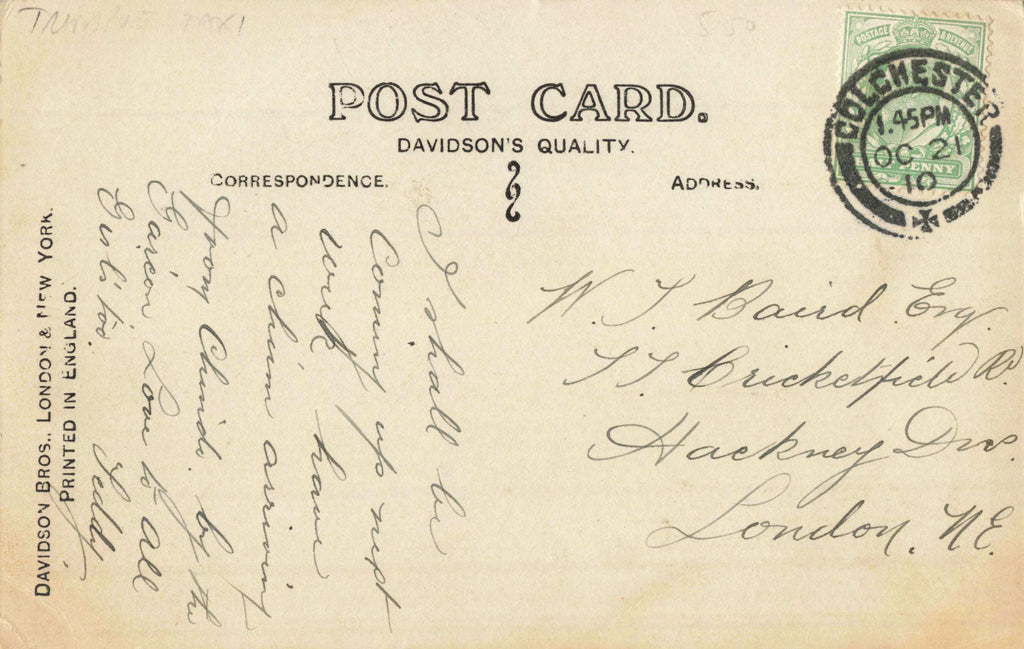 TAXI
5-50
POST CARD.
DAVIDSON'S QUALITY.
CORRESPONDENCE.
ADDRESS.
POSTAGE & REVENUE
PENNY
COLCHESTER
1.45PM
OC 21
10
I shall be
Coming up next
week have
a chum arriving
from by the
Garcon Love to All
Girls too.
Teddy
W. J. Baird Esq.
Cricketfield Rd
Hackney Dns
London. N.E.
DAVIDSON BROS., LONDON & NEW YORK.
PRINTED IN ENGLAND.